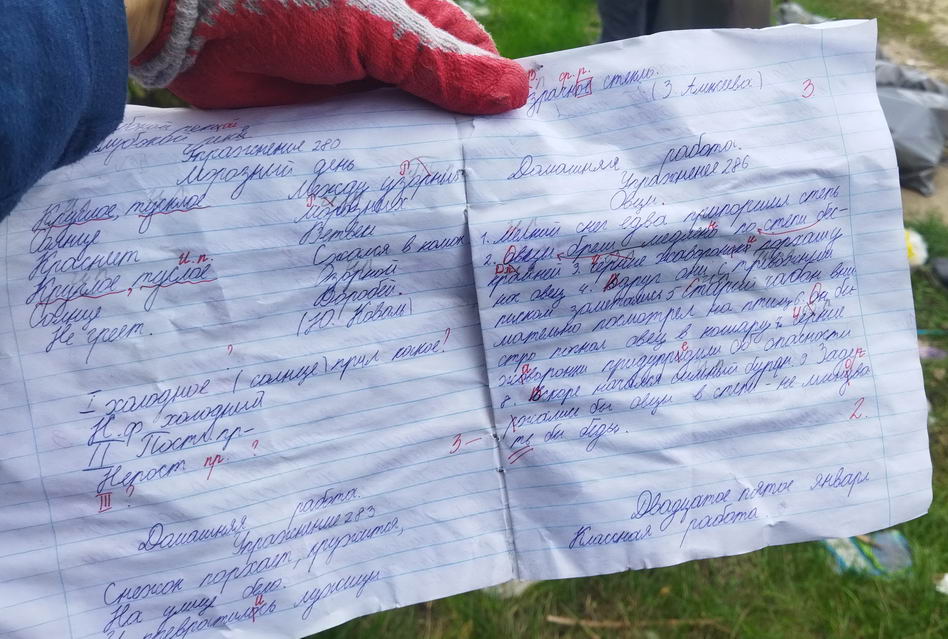 Упражнение 280
Морозный день
Круглое, тусклое
Солнце
Краснеет
и.п.
Круглое, тусклое
Солнце
Не греет.
Между узорных
Морозных
Ветвей
Сжался в комок
Зоркой
Воробей.
(Ю. Коваль)
?
I холодное (солнце) прил какое?
Н.ф холодный
II Пост. пр-
Непост пр. ?
III ?
3-
Домашняя работа.
Упражнение 283
Снежок порхает, кружится,
На улице бело.
И превратились лужицы
ф. р.
стекло.
(З. Алексеева)
3
Домашняя работа.
Упражнение 286
Овцы.
1. Мелкий снег едва припорошил степь
2. Овцы брели медлено по степи бес-
крайней 3. Чёрные жаворонки
нок овец 4. Вдруг они с тревожным
писком заметались 5 Старший чабан вни
мательно посмотрел на птиц 6. Он бы
стро погнал овец в кошару 7. Чёрние
жаворонки придупредили об опасности
8. Вскоре начался сильный буран. 9 Задер
жались бы овцы в степи - не миновать
бы беды.
2.
Двадцатое пятое январь
Классная работа.